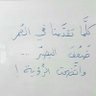 كلما تقدمنا في العمر
ضعف البصر ..
واتضحت الرؤية !